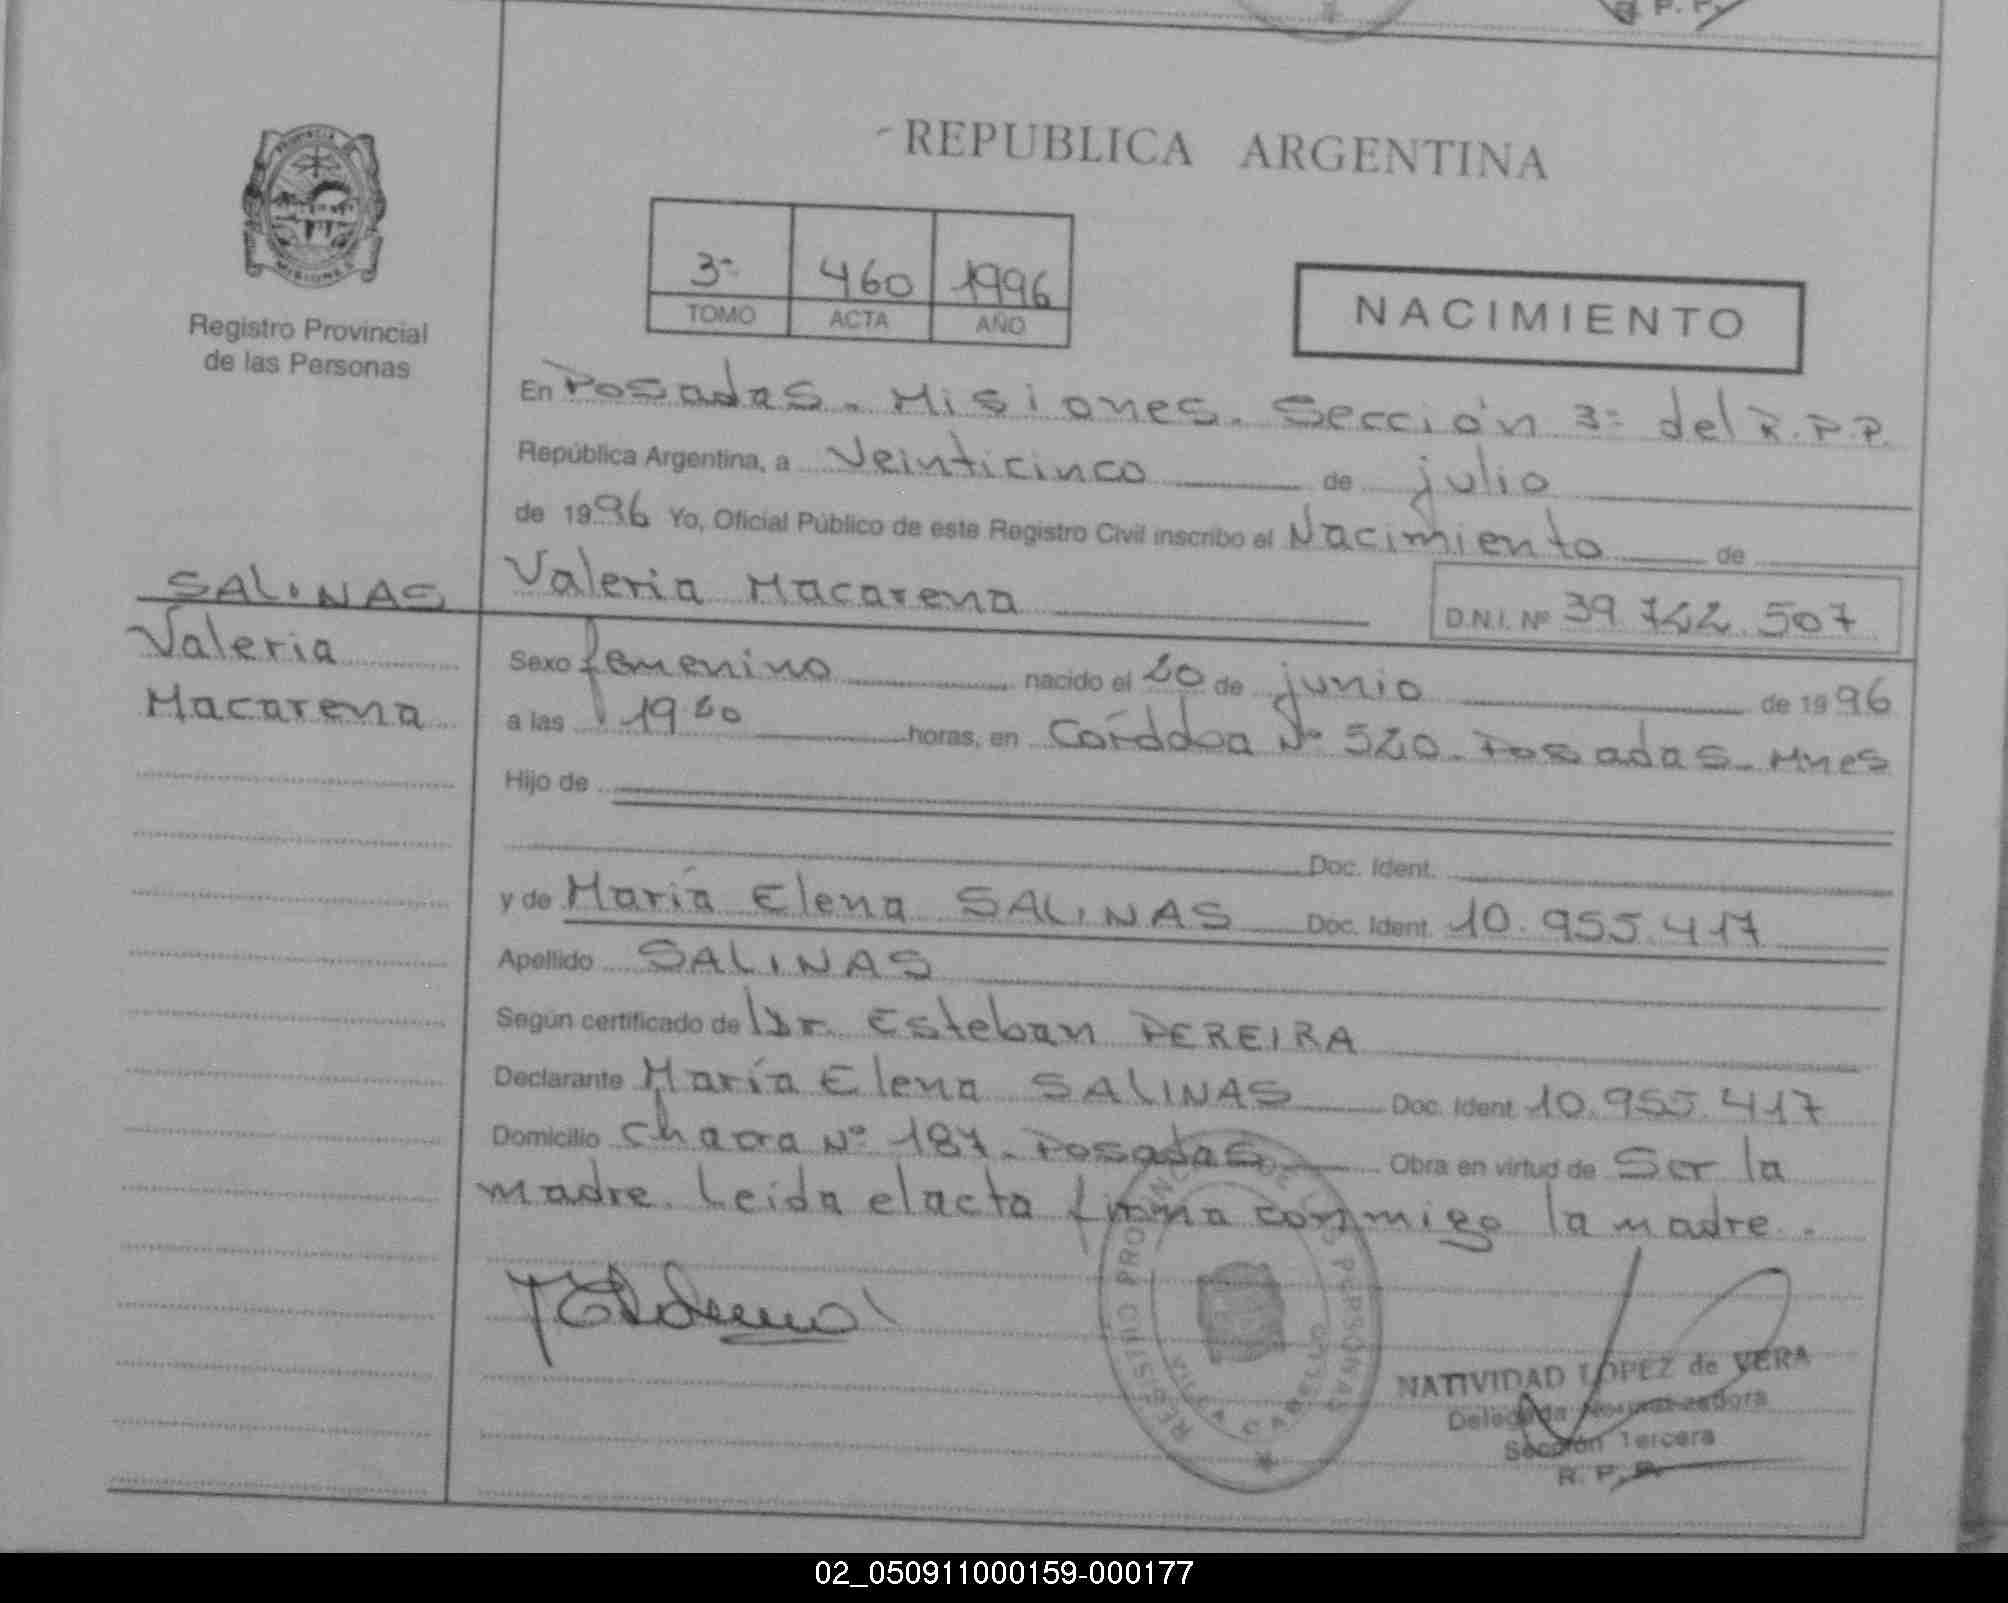 REPUBLICA ARGENTINA
3ª 460 1996
TOMO ACTA AÑO
NACIMIENTO
Registro Provincial
de las Personas
En Posadas. Misiones. Sección 3ª del R.P.P.
República Argentina, a Veinticinco de julio
de 1996 Yo, Oficial Público de este Registro Civil inscribo el Nacimiento de
Valeria Macarena D.N.I. Nº 39.722.507
SALINAS
Valeria
Macarena
Sexo femenino nacido el 20 de junio de 1996
a las 19:20 horas, en Córdoba Nº 520. Posadas. Mnes
Hijo de
Doc. Ident.
y de María Elena SALINAS Doc. Ident. 10.955.417
Apellido SALINAS
Según certificado de Dr. Esteban PEREIRA
Declarante María Elena SALINAS Doc. Ident 10.955.417
Domicilio Chacra Nº 187. Posadas Obra en virtud de Ser la
madre. Leída el acta firma conmigo la madre.
REGISTRO PROVINCIAL DE LAS PERSONAS
NATIVIDAD LOPEZ de VERA
Delegada Normalizadora
Sección Tercera
R. P. P.
02_050911000159-000177